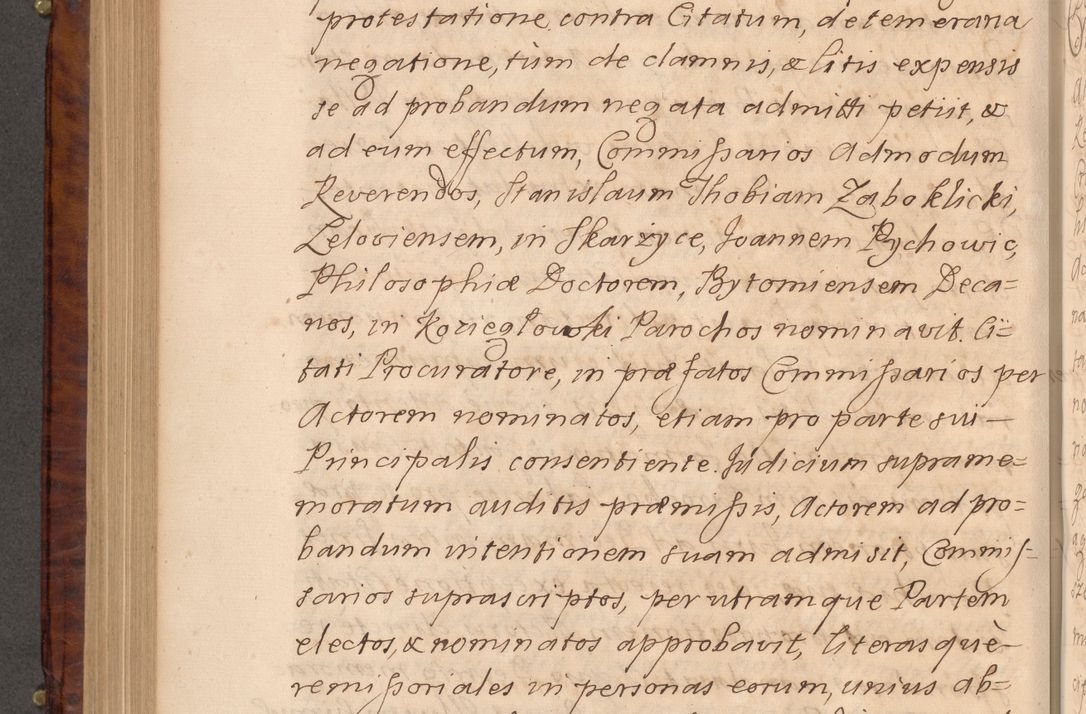 protestatione contra Citatum, de temeraria
negatione, tùm de damnis, & litis expensis
se ad probandum negata admitti petiit, &
ad eum effectum, Commissarios Admodum
Reverendos, Stanislaum Thobiam Zaboklicki,
Leloviensem, in Skarzyce, Joannem Rychowic,
Philosophiæ Doctorem, Bytomiensem Deca=
nos, in Koziegłowki Parochos nominavit. Ci=
tati Procuratore, in præfatos Commissarios per
Actorem nominatos, etiam pro parte sui
Principalis consentiente. Judicium suprame=
moratum auditis præmissis, Actorem ad pro=
bandum intentionem suam admisit, Commis=
sarios suprascriptos, per utramque Partem
electos, & nominatos approbavit, literasquè
remissoriales in personas eorum, unius ab=